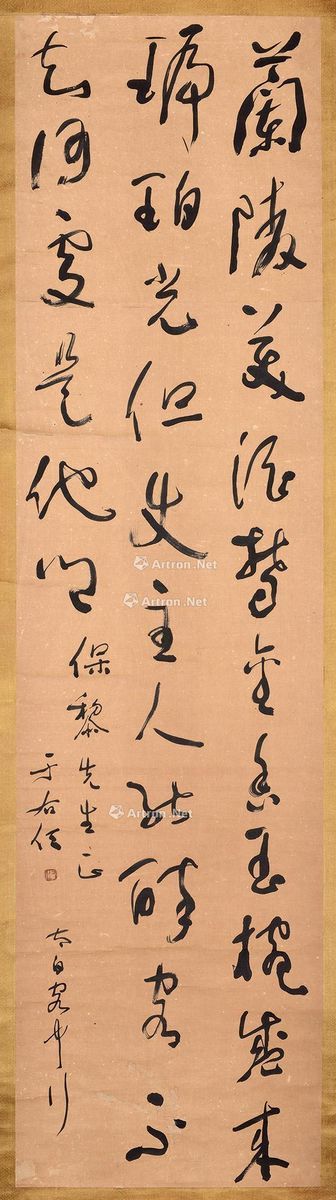 蘭陵美酒鬱金香玉椀盛來
琥珀光但使主人能醉客不
知何處是他鄉
保黎先生正
于右任
太白客中行
Artron.Net
Artron.Net
Artron.Net